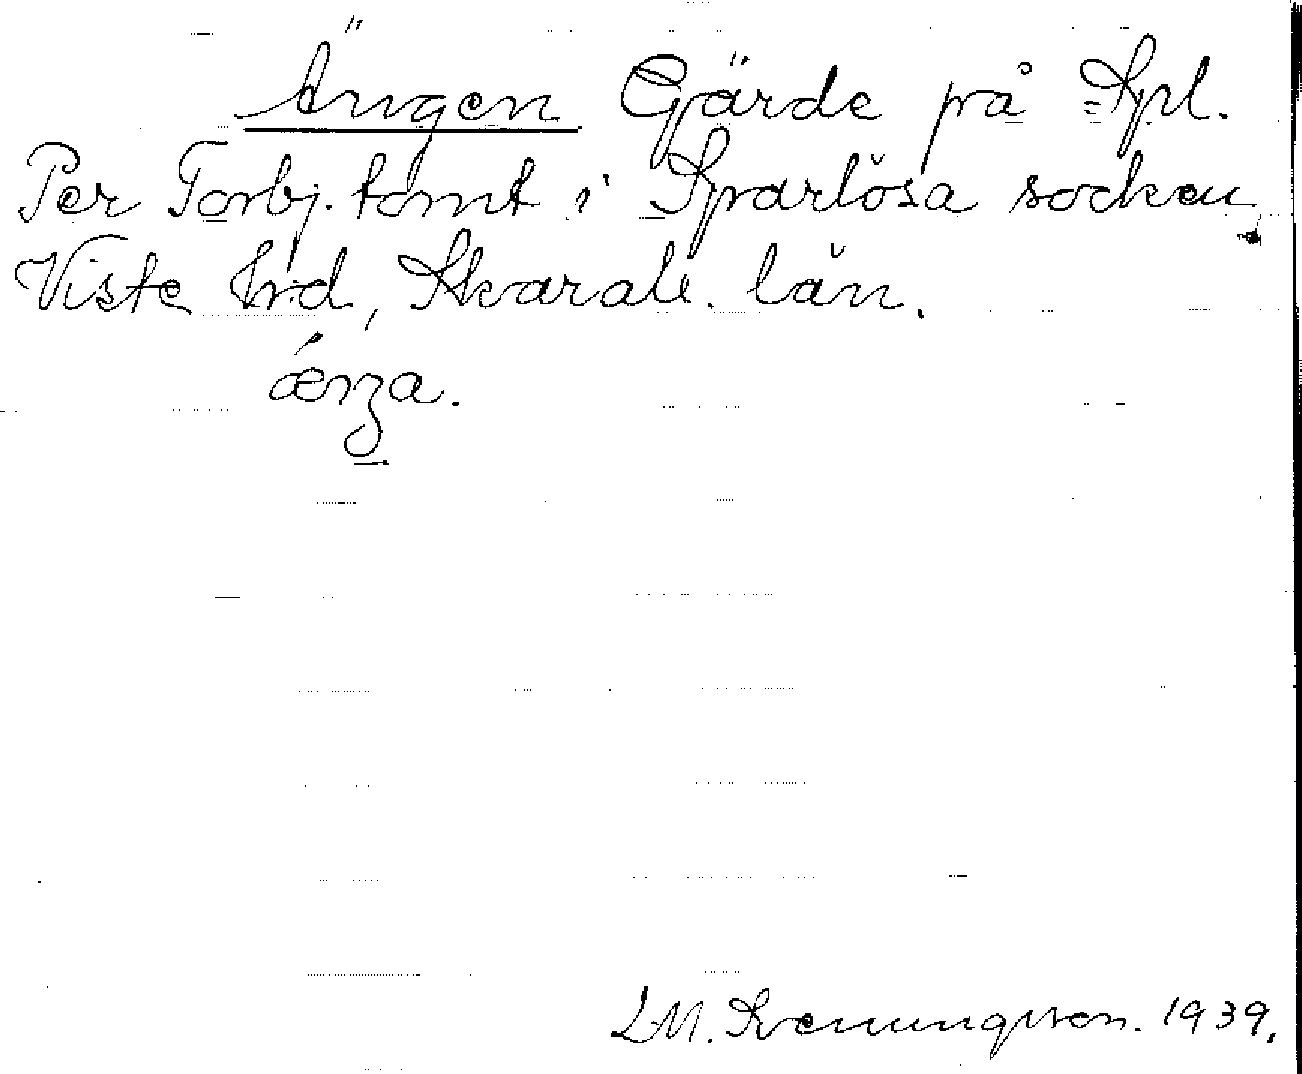 Ängen Gärde på Spl.
Per Torbj. tomt i Sparlösa socken
Viste hrd, Skarab. län.
ænza.
L.M. Svenungsson. 1939.